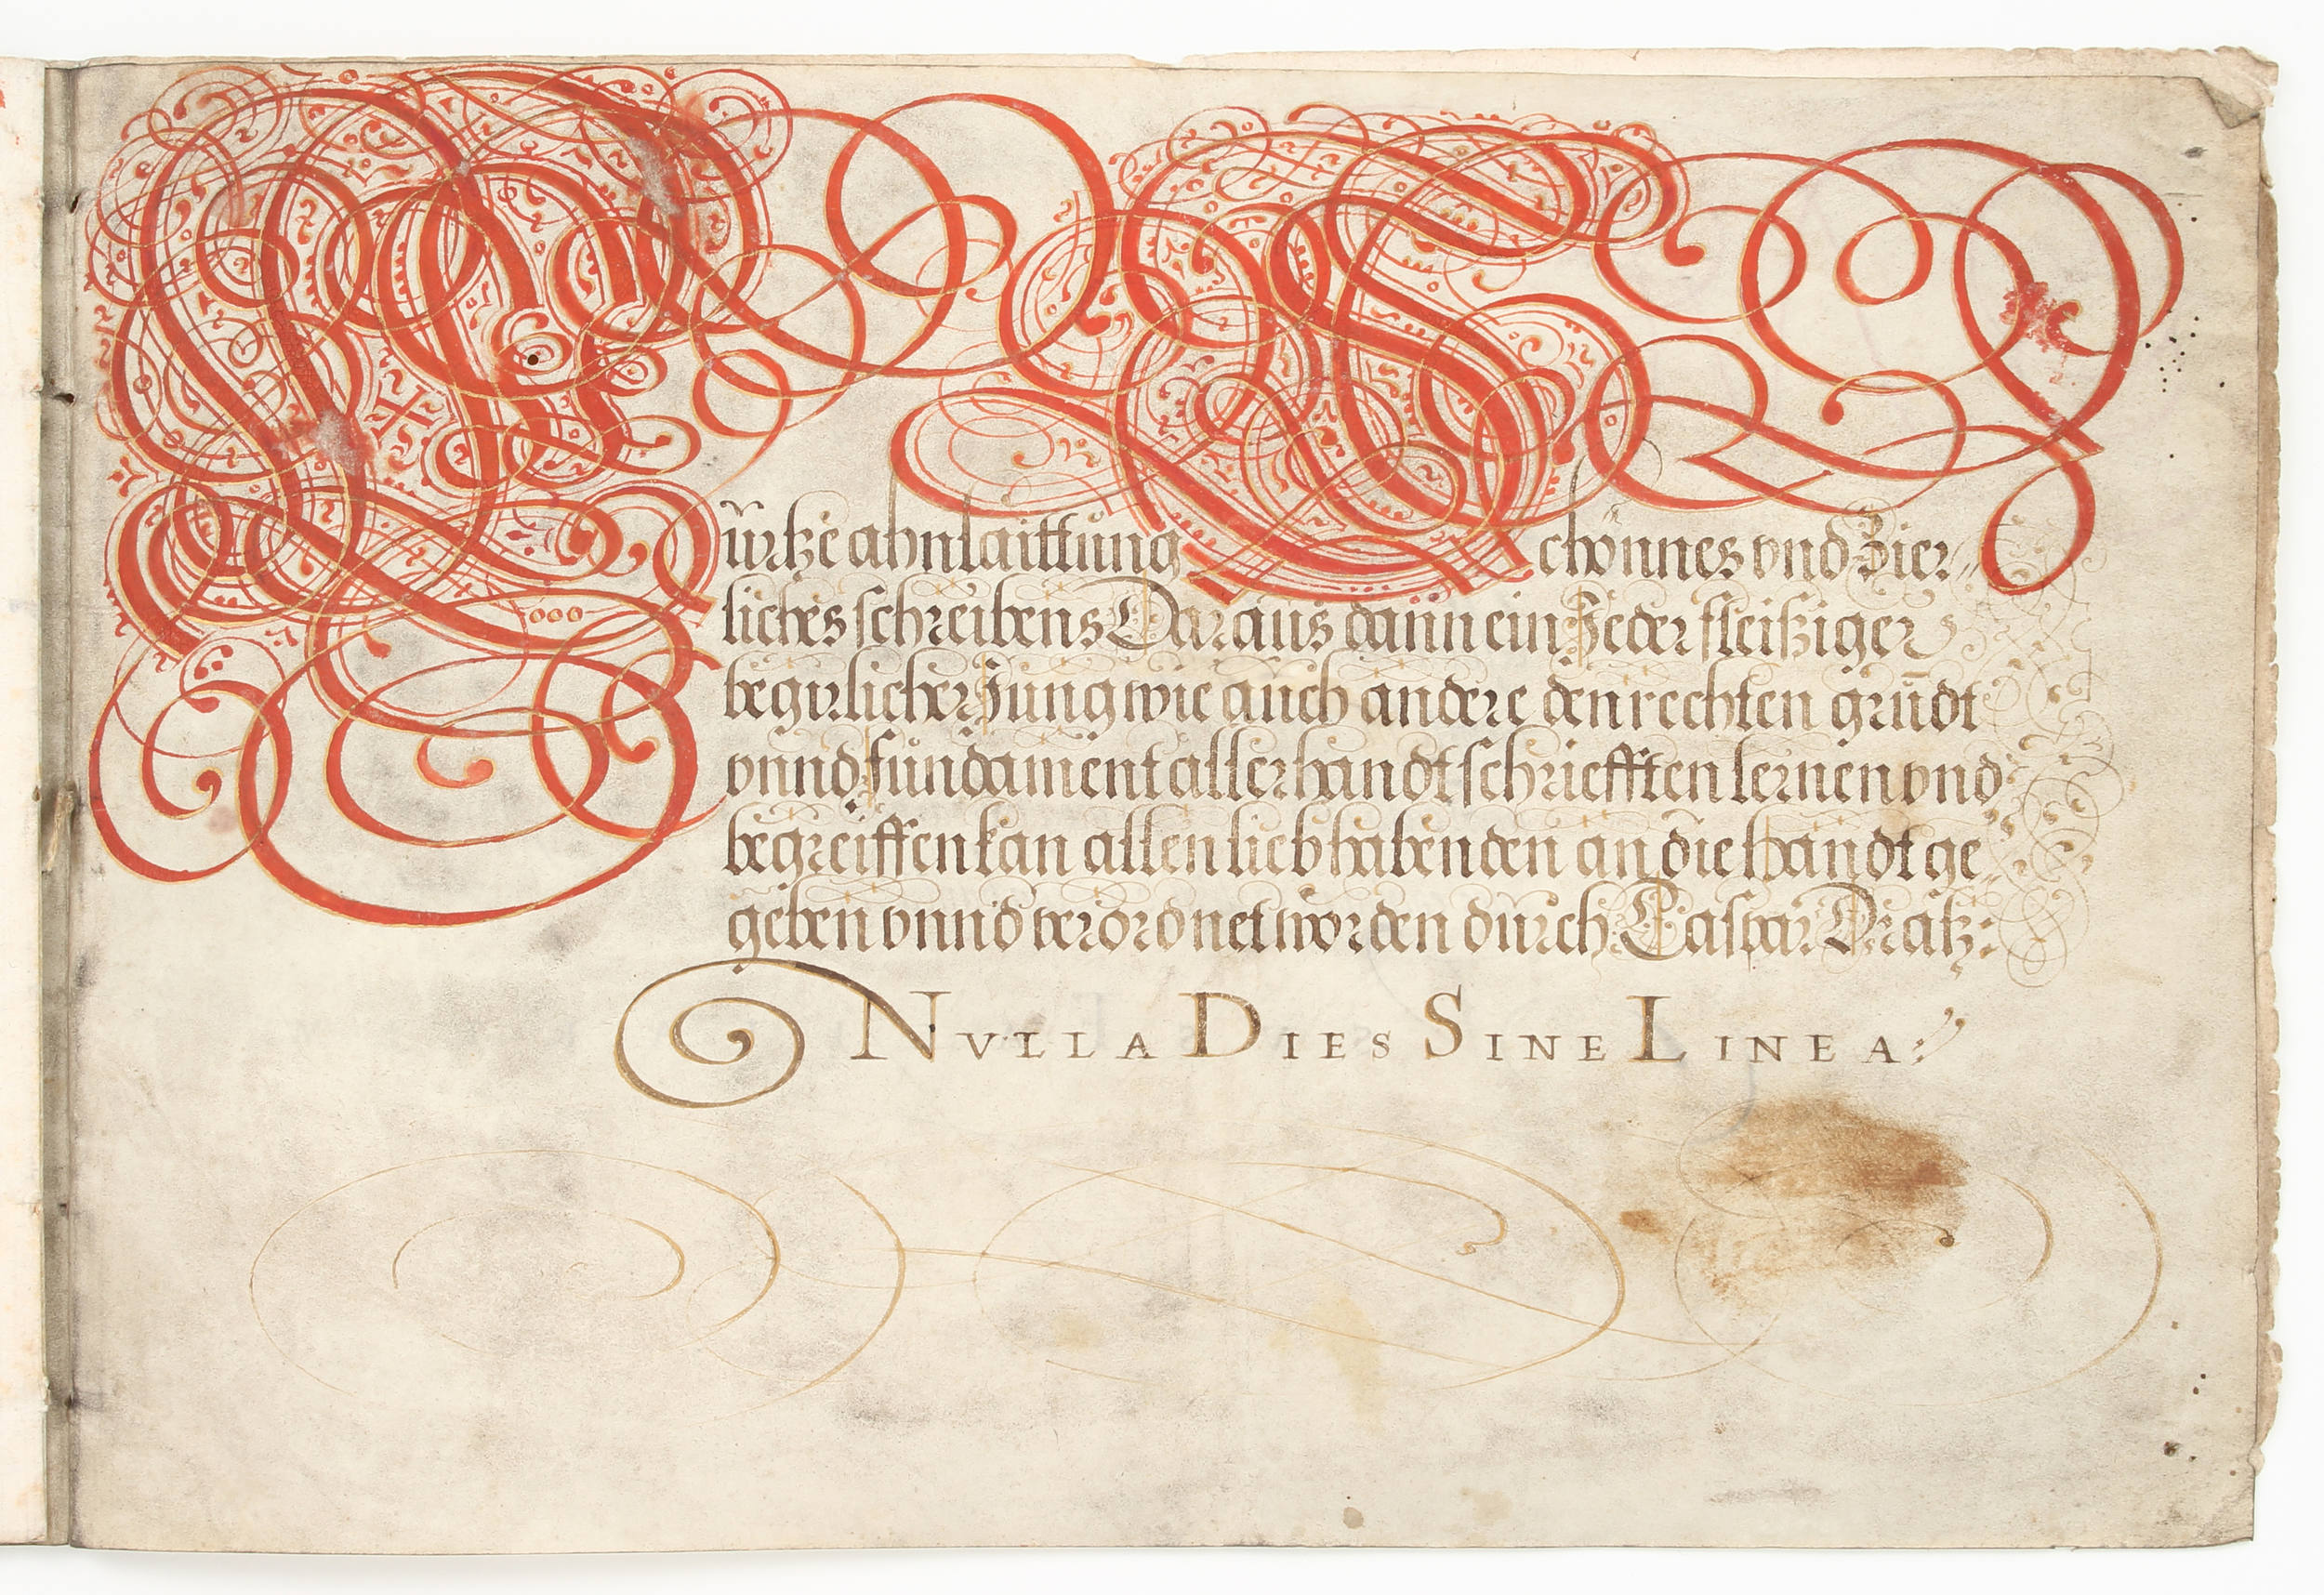 Kurtze ahnlaittung Schönnes vnd Zier-
liches schreibens Daraus dann ein Jeder fleisiger
begirlicher Jung wie auch andere den rechten grūdt
vnnd fundament aller handtschriefften lernen vnd
begreiffen kan allen liebhabenden an die handt ge
geben vnnd verordnet worden durch Caspar Dratz:
NVLLA DIES SINE LINEA